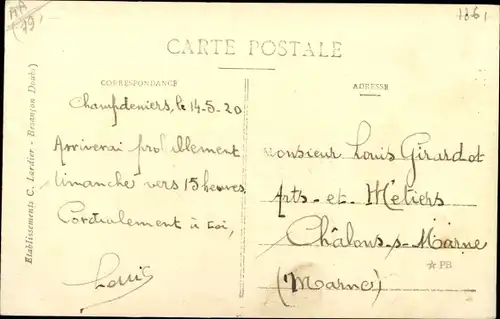 AA
79
1361
CARTE POSTALE
CORRESPONDANCE
ADRESSE
Champdeniers, le 14-5-20
Arriverai probablement
dimanche vers 15 heures
Cordialement à toi,
Louis
Monsieur Louis Girardot
Arts-et-Métiers
Châlons-s-Marne
(Marne)
☆ PB
Etablissements C. Lardier - Besançon (Doubs)